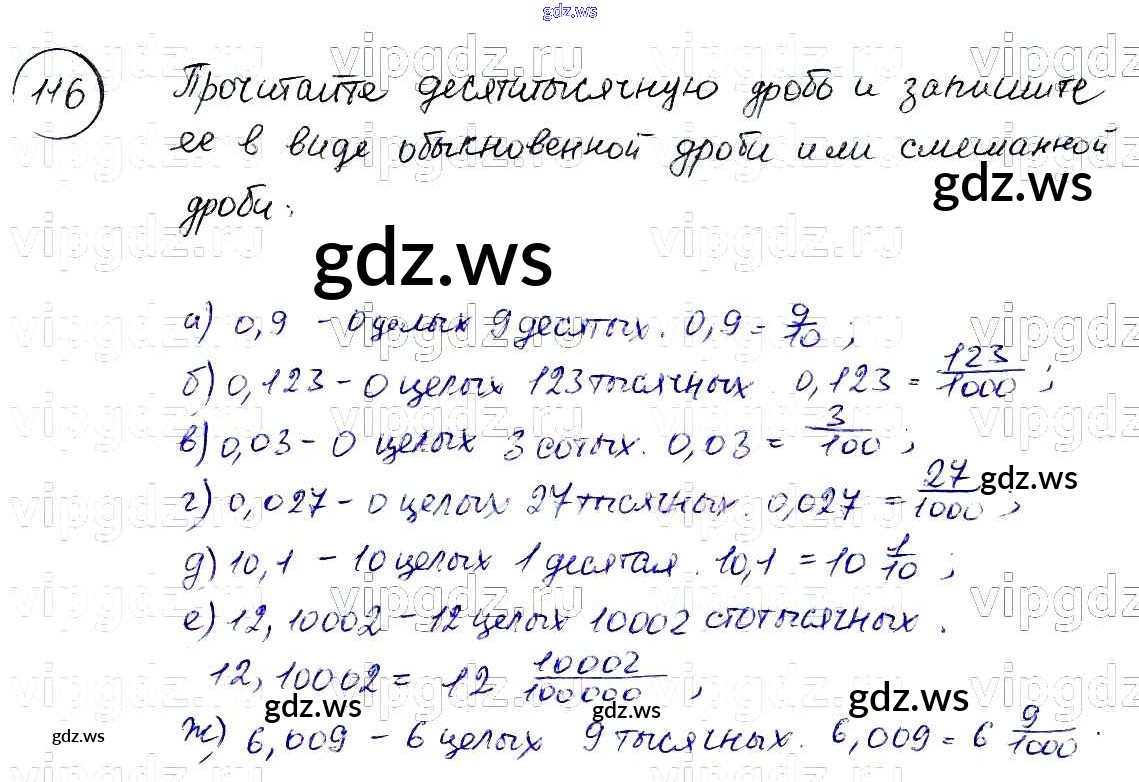 vipgdz.ru
116
Прочитайте десятитысячную дробь и запишите
ее в виде обыкновенной дроби или смешанной
дроби:
gdz.ws
gdz.ws
а) 0,9 – 0 целых 9 десятых. 0,9 = 9/10 ;
б) 0,123 – 0 целых 123 тысячных. 0,123 = 123/1000 ;
в) 0,03 – 0 целых 3 сотых. 0,03 = 3/100 ;
г) 0,027 – 0 целых 27 тысячных. 0,027 = 27/1000 ;
gdz.ws
д) 10,1 – 10 целых 1 десятая. 10,1 = 10 1/10 ;
е) 12,10002 – 12 целых 10002 стотысячных.
12,10002 = 12 10002/100000 ,
gdz.ws
gdz.ws
gdz.ws
ж) 6,009 – 6 целых 9 тысячных. 6,009 = 6 9/1000 .